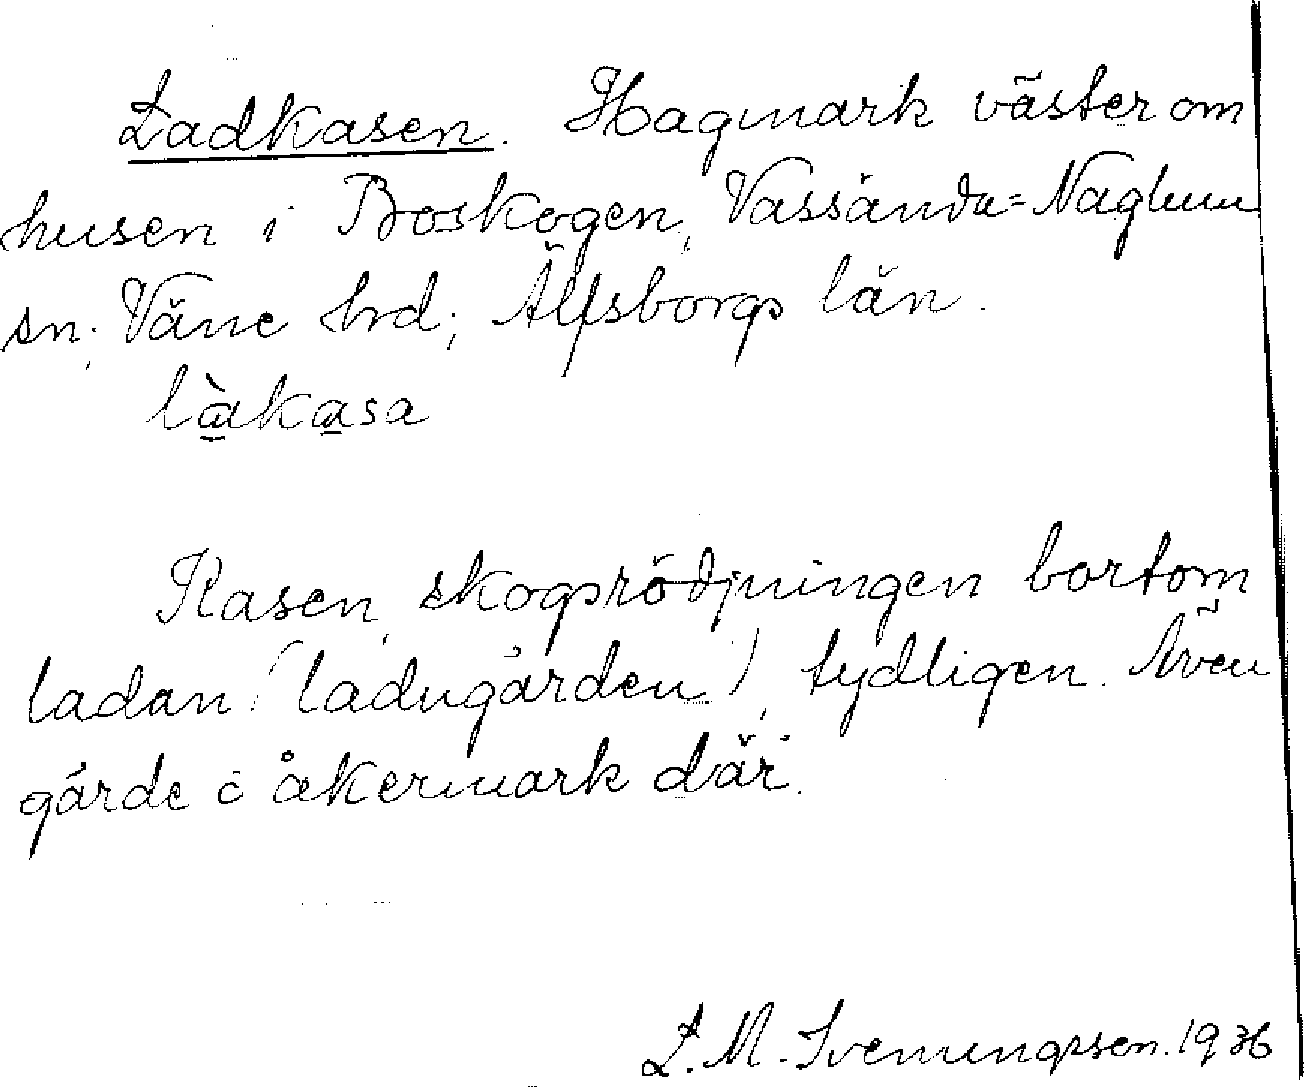 Ladkasen. Hagmark väster om
husen i Boskogen, Vassända=Naglum
sn; Väne hrd; Älfsborgs län.
làkasa
Kasen, skogsrödjningen bortom
ladan (ladugården), tydligen. Även
gärde o åkermark där.
L. M. Svenungsson. 1936